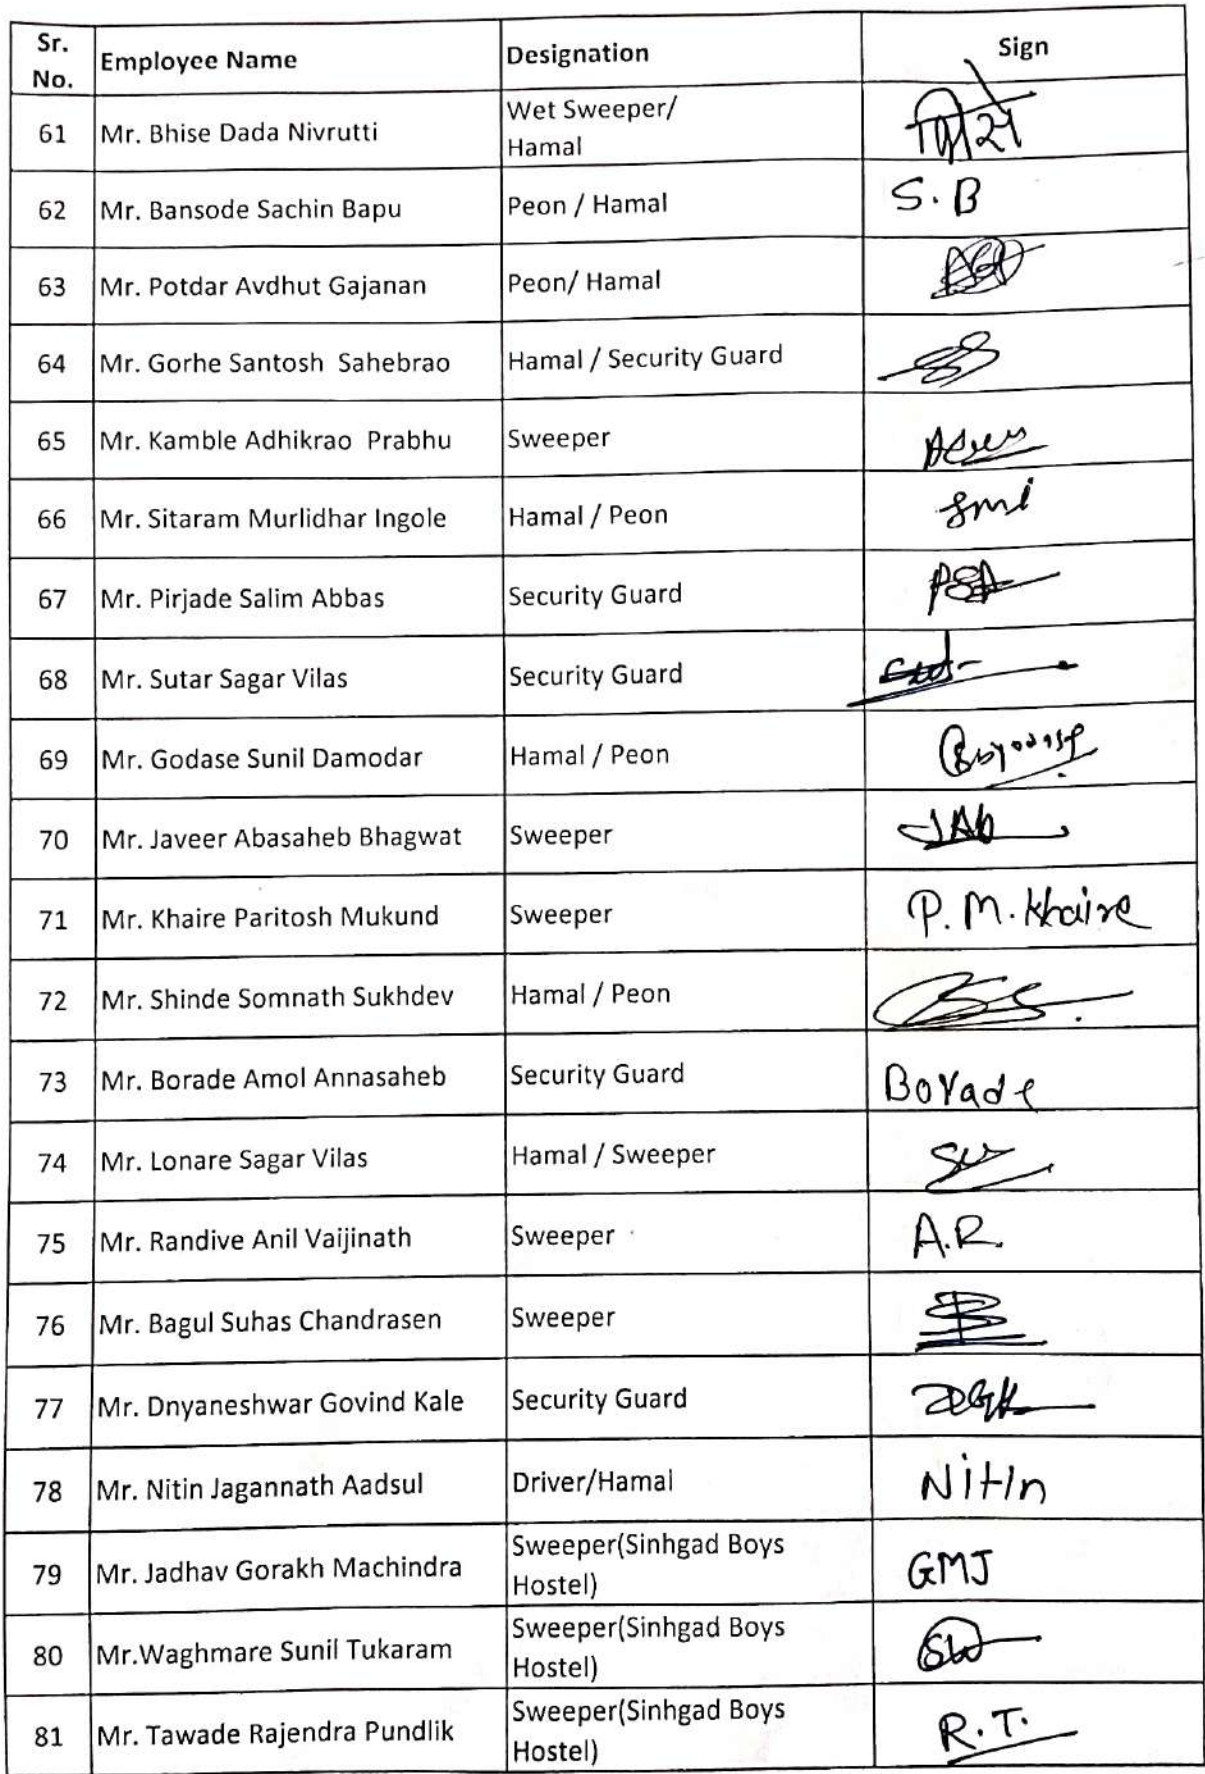 Sr. No. Employee Name Designation Sign
61 Mr. Bhise Dada Nivrutti Wet Sweeper/ Hamal भिसे
62 Mr. Bansode Sachin Bapu Peon / Hamal S. B
63 Mr. Potdar Avdhut Gajanan Peon/ Hamal
64 Mr. Gorhe Santosh Sahebrao Hamal / Security Guard
65 Mr. Kamble Adhikrao Prabhu Sweeper
66 Mr. Sitaram Murlidhar Ingole Hamal / Peon Smi
67 Mr. Pirjade Salim Abbas Security Guard PSA
68 Mr. Sutar Sagar Vilas Security Guard
69 Mr. Godase Sunil Damodar Hamal / Peon
70 Mr. Javeer Abasaheb Bhagwat Sweeper JAb
71 Mr. Khaire Paritosh Mukund Sweeper P. M. Khaire
72 Mr. Shinde Somnath Sukhdev Hamal / Peon
73 Mr. Borade Amol Annasaheb Security Guard Borade
74 Mr. Lonare Sagar Vilas Hamal / Sweeper
75 Mr. Randive Anil Vaijinath Sweeper A.R.
76 Mr. Bagul Suhas Chandrasen Sweeper
77 Mr. Dnyaneshwar Govind Kale Security Guard DGK
78 Mr. Nitin Jagannath Aadsul Driver/Hamal Nitin
79 Mr. Jadhav Gorakh Machindra Sweeper(Sinhgad Boys Hostel) GMJ
80 Mr.Waghmare Sunil Tukaram Sweeper(Sinhgad Boys Hostel) SW
81 Mr. Tawade Rajendra Pundlik Sweeper(Sinhgad Boys Hostel) R.T.